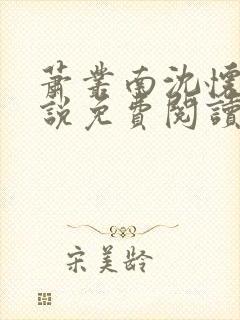 蕭業南沈懷
說免費閱讀
宋美齡